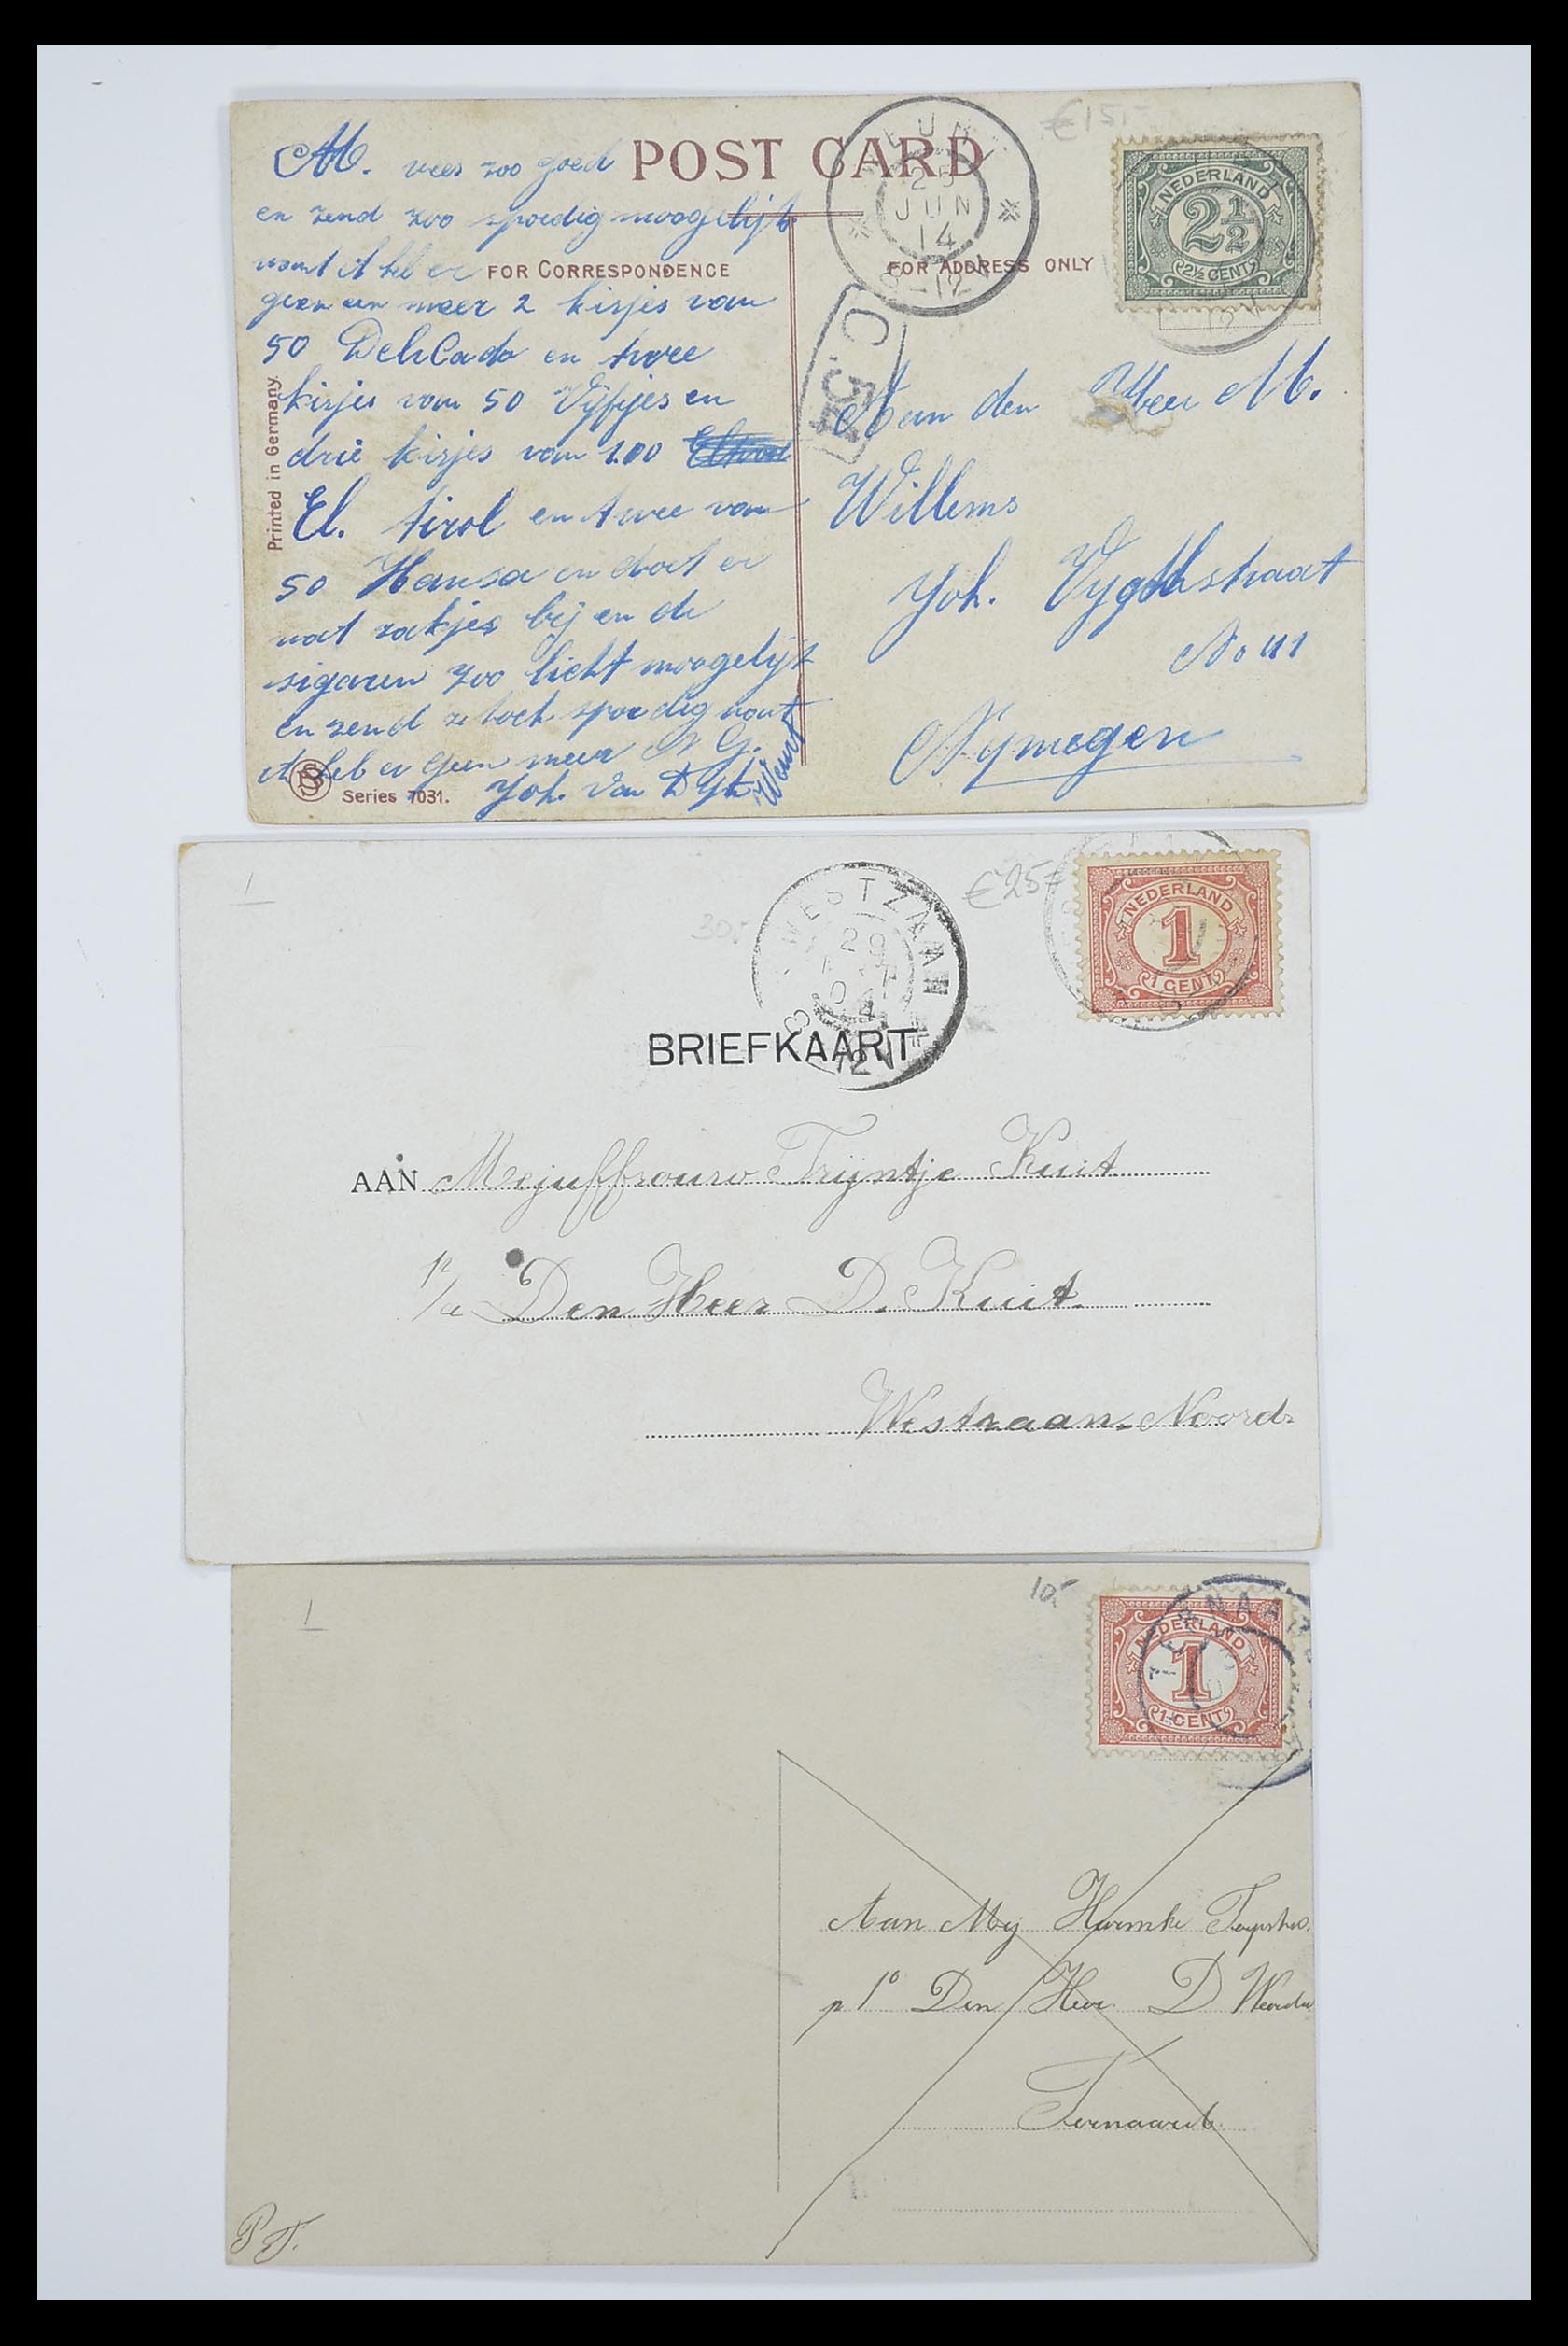 €15,-
POST CARD
M. wees zoo goed
en zend zoo spoedig moogelijk
want ik heb er
FOR CORRESPONDENCE
geen een meer 2 kisjes van
50 Delicado en twee
kisjes van 50 Vijfjes en
drie kisjes van 100
El. tirol en twee van
50 Hansa en doet er
wat zakjes bij en de
sigaren zoo licht moogelijk
en zend ze toch spoedig want
ik heb er geen meer N G.
Joh. van Dijk
Printed in Germany.
Series 7031.
25
JUN
14
8-12V
C.54
FOR ADDRESS ONLY
NEDERLAND
2½
2½ CENT
Aan den Heer M.
Willems
Joh. Vygthstraat
No 41
Nymegen
1
30,-
€25,-
WESTZAAN
29
04
8-12V
NEDERLAND
1
1 CENT
BRIEFKAART
AAN Mejuffrouw Trijntje Kuit
p/a Den Heer D. Kuit.
Westzaan. Noord.
1
10,-
TERNAARD
NEDERLAND
1
1 CENT
Aan Mej Harmke
p 1º Den Heer D
Ternaard
P T.